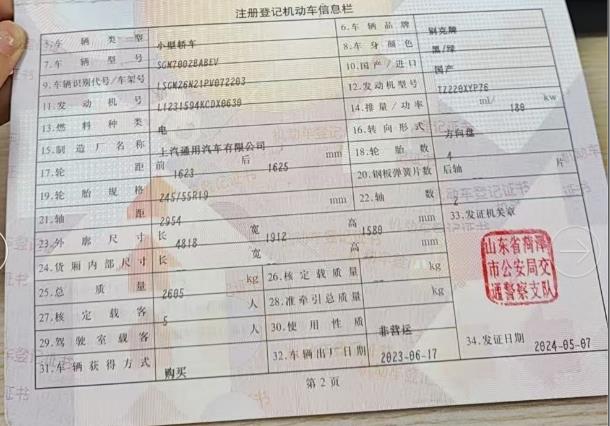 注册登记机动车信息栏
5.车辆类型 小型轿车 6.车辆品牌 别克牌
7.车辆型号 SGM7002BABEV 8.车身颜色 黑/绿
9.车辆识别代号/车架号 LSGMZ6N21PV072203 10.国产/进口 国产
11.发动机号 L1231594KCDX0630 12.发动机型号 TZ220XYP76
13.燃料种类 电 14.排量/功率 ml/ 180 kw
15.制造厂名称 上汽通用汽车有限公司 16.转向形式 方向盘
17.轮距 前 1623 后 1625 mm 18.轮胎数 4
19.轮胎规格 245/55R19 20.钢板弹簧片数 后轴 片
21.轴距 2954 mm 22.轴数 2
23.外廓尺寸 长 4818 宽 1912 高 1580 mm 33.发证机关章
24.货厢内部尺寸 长 宽 高 mm
山东省菏泽
市公安局交
通警察支队
25.总质量 2605 kg 26.核定载质量 kg
27.核定载客 5 人 28.准牵引总质量 kg
29.驾驶室载客 人 30.使用性质 非营运
31.车辆获得方式 购买 32.车辆出厂日期 2023-06-17 34.发证日期 2024-05-07
第2页